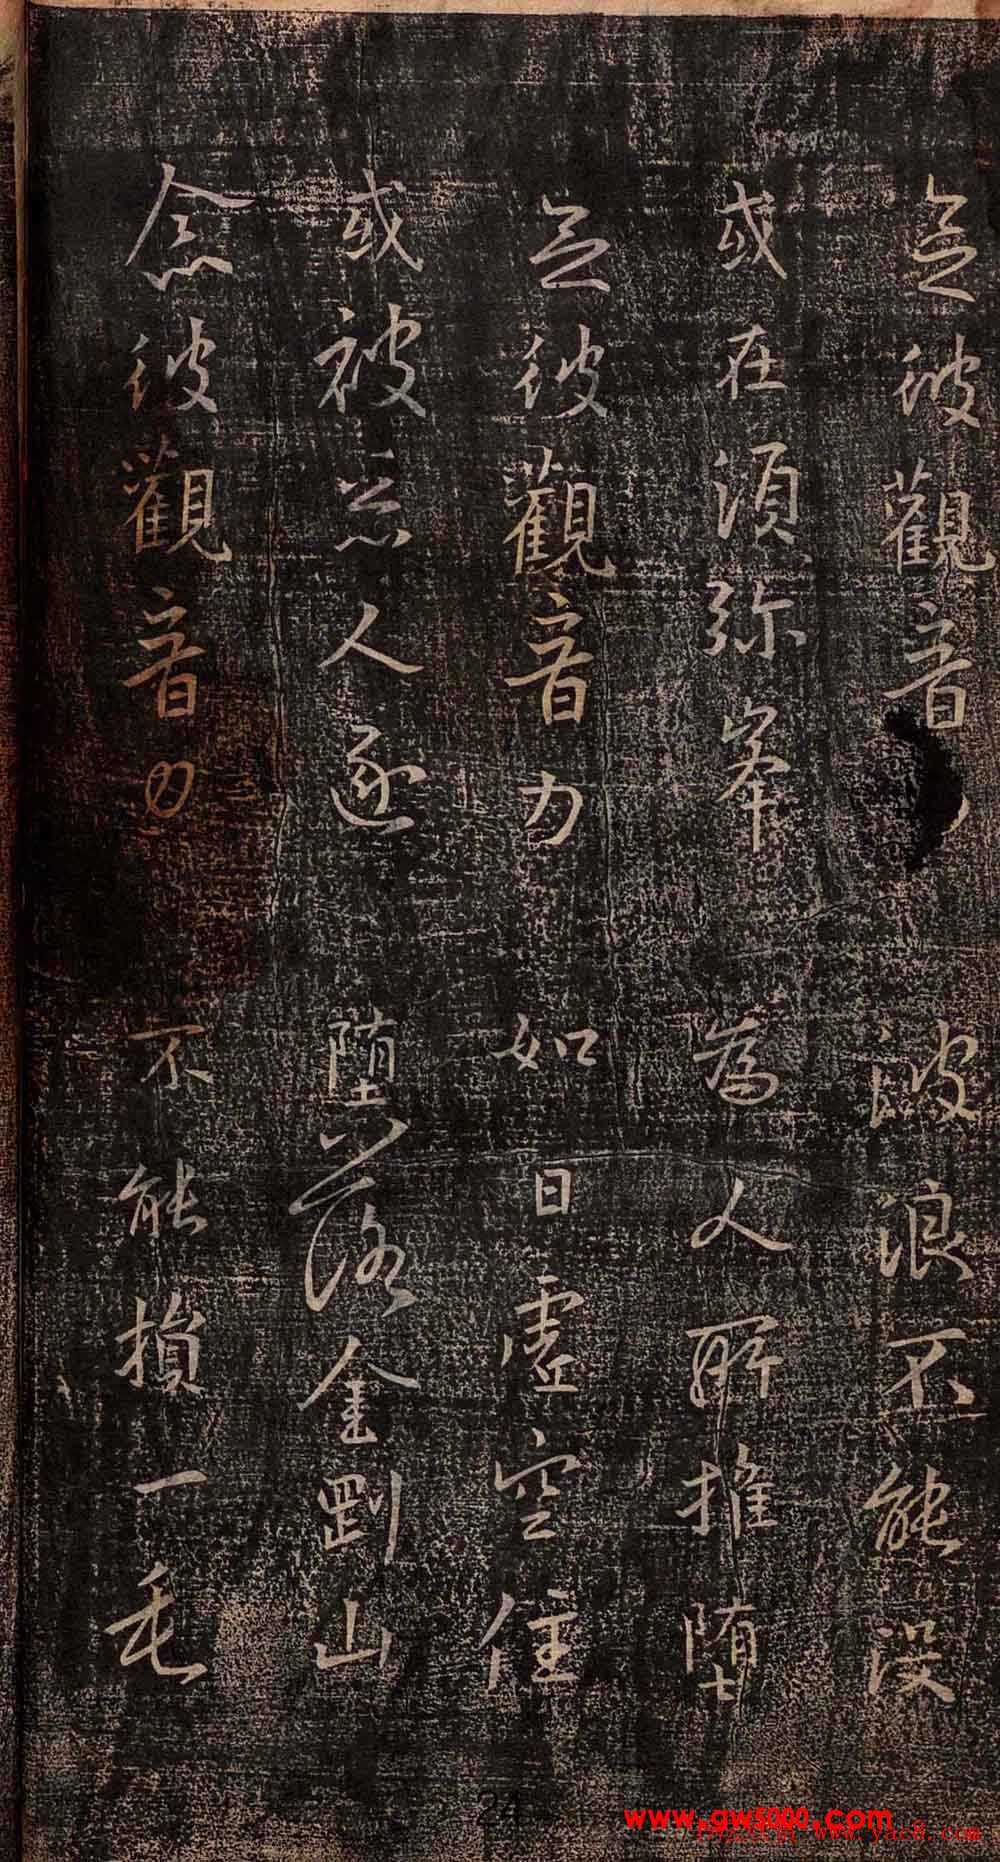 念彼觀音 波浪不能沒
或在須弥峯 為人所推堕
念彼觀音力 如日虛空住
或被惡人逐 堕落金剛山
念彼觀音力 不能損一毛
24
www.gw5000.com
www.yac8.com